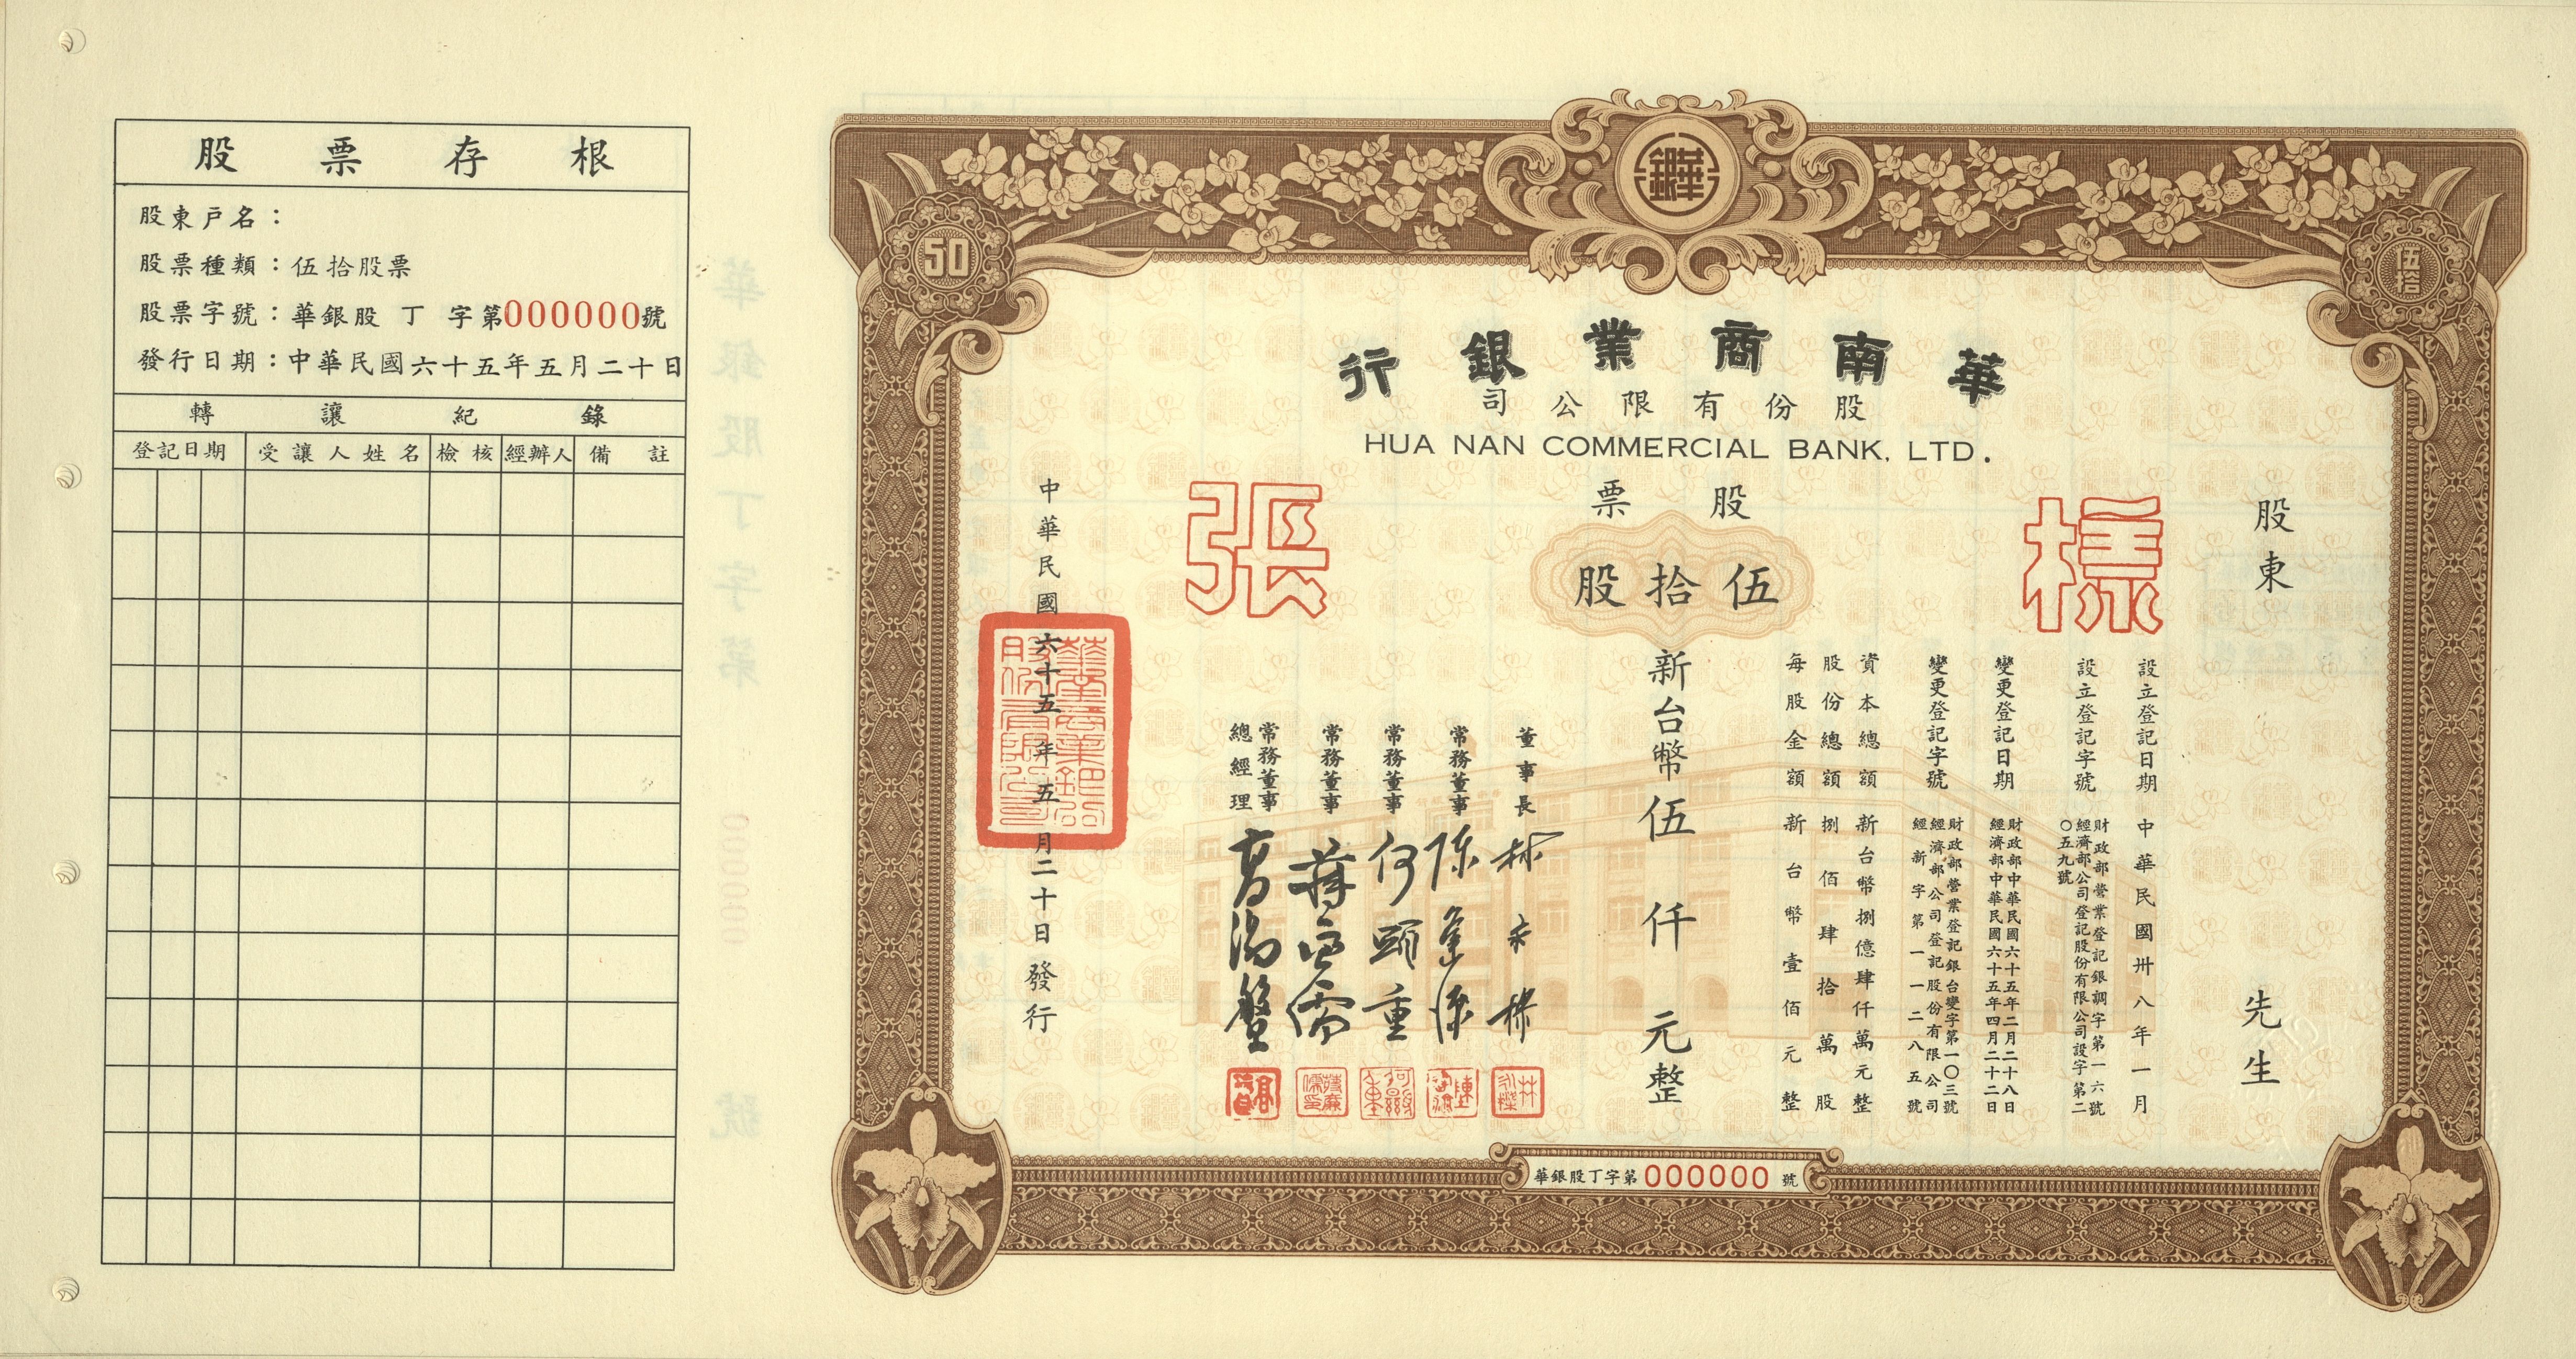 股票存根
股東戶名：
股票種類：伍拾股票
股票字號：華銀股 丁 字第000000號
發行日期：中華民國六十五年五月二十日
轉讓紀錄
登記日期 受讓人姓名 檢核 經辦人 備註
50
伍拾
華南商業銀行
股份有限公司
HUA NAN COMMERCIAL BANK, LTD.
股票
標張
伍拾股
股東 先生
設立登記日期 中華民國卅八年一月
設立登記字號 財政部營業登記銀調字第一六號
經濟部公司登記股份有限公司設字第二
〇五九號
變更登記日期 財政部中華民國六十五年二月二十八日
經濟部中華民國六十五年四月二十二日
變更登記字號 財政部營業登記銀台變字第一〇三號
經濟部公司登記股份有限公司
經新字第一一二八五號
資本總額 新台幣捌億肆仟萬元整
股份總額 捌佰肆拾萬股
每股金額 新台幣壹佰元整
新台幣伍仟元整
董事長
常務董事
常務董事 何顯重
常務董事
常務董事
總經理
中華民國六十五年五月二十日發行
華銀股丁字第000000號